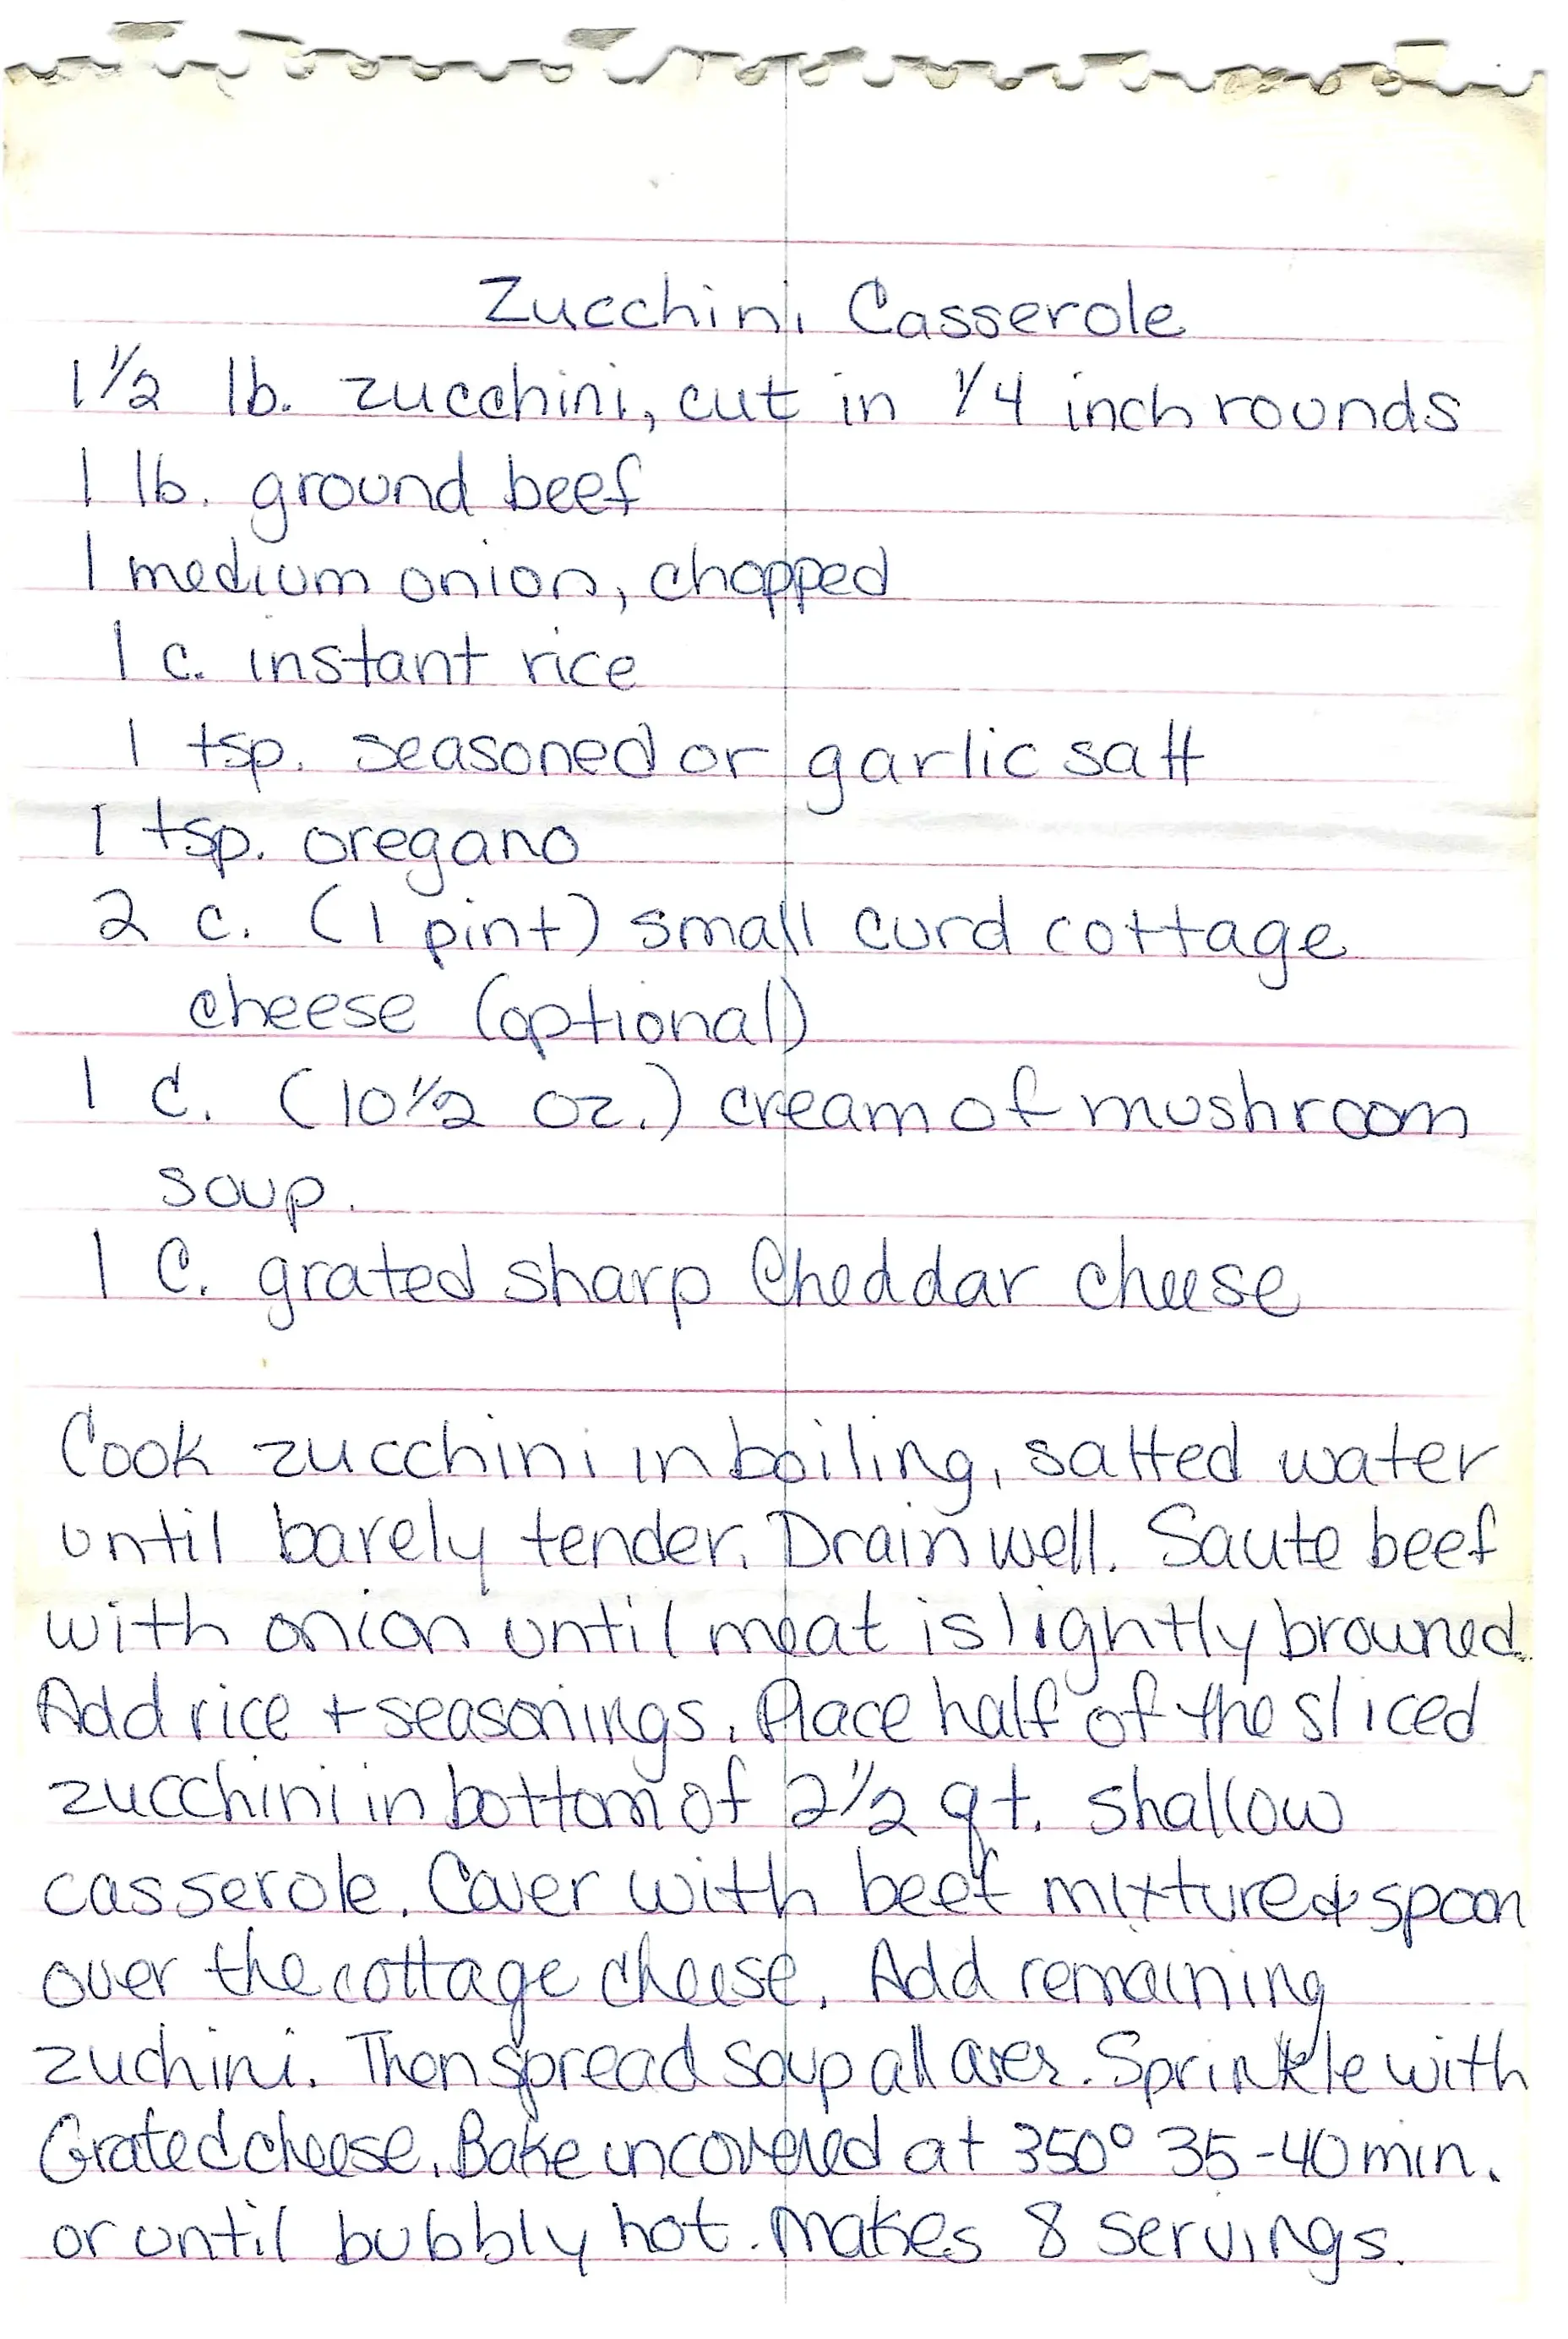 Zucchini Casserole
1 1/2 lb. zucchini, cut in 1/4 inch rounds
1 lb. ground beef
1 medium onion, chopped
1 c. instant rice
1 tsp. seasoned or garlic salt
1 tsp. oregano
2 c. (1 pint) small curd cottage
cheese (optional)
1 c. (10 1/2 oz.) cream of mushroom
soup.
1 C. grated sharp Cheddar cheese
Cook zucchini in boiling, salted water
until barely tender. Drain well. Saute beef
with onion until meat is lightly browned.
Add rice + seasonings. Place half of the sliced
zucchini in bottom of 2 1/2 qt. shallow
casserole. Cover with beef mixture & spoon
over the cottage cheese. Add remaining
zuchini. Then spread soup all over. Sprinkle with
Grated cheese. Bake uncovered at 350° 35-40 min.
or until bubbly hot. Makes 8 servings.